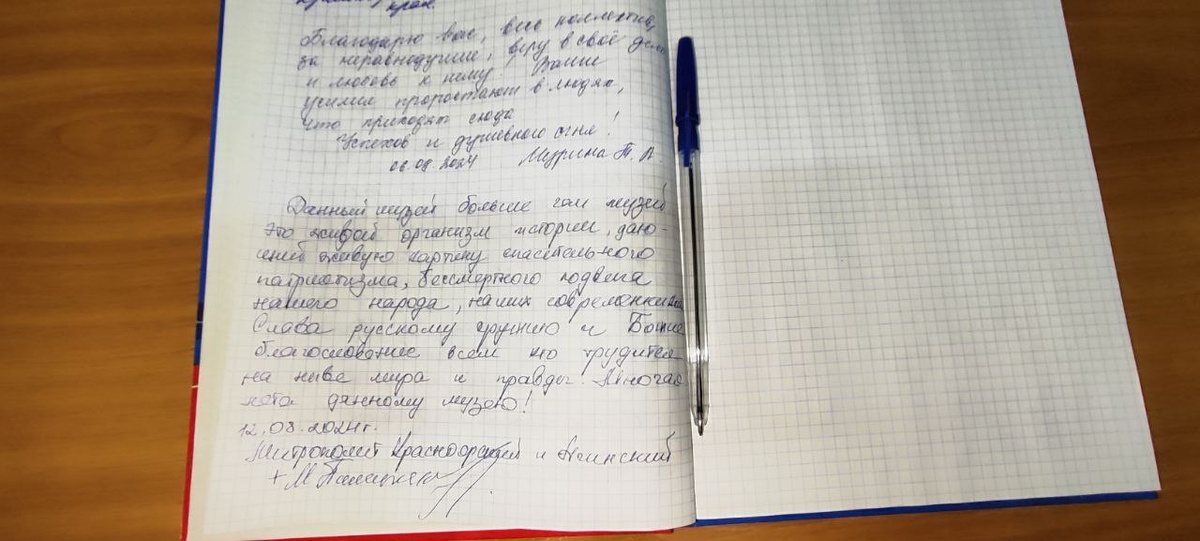 край.
Благодарю вас, весь коллектив,
за неравнодушие, веру в своё дело
и любовь к нему. Ваши
усилия проростают в людях,
что приходят сюда
Успехов и душевного огня!
06.08.2024 Т. А
Данный музей больше чем музей
это живой организм истории, даю-
щий живую картину спасительного
патриотизма, бессмертного подвига
нашего народа, наших современников
Слава русскому оружию и Божие
благословение всем кто трудится
на ниве мира и правды. Многая
лета данному музею!
12.08.2024г.
Митрополит Красноярский и Ачинский
+